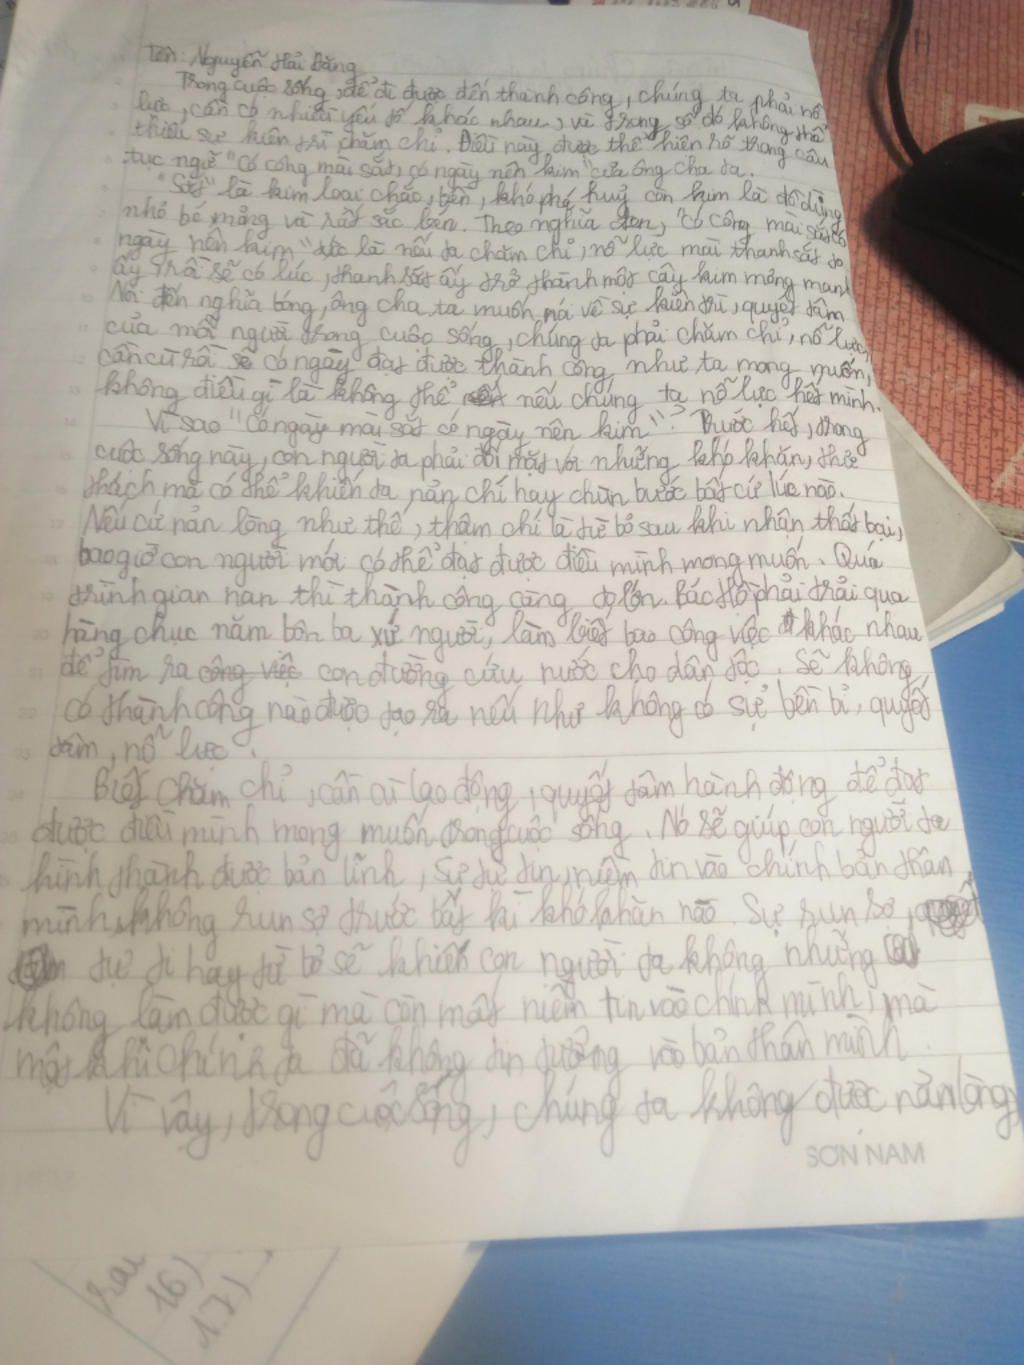 Tên: Nguyễn Hải Đăng
Trong cuộc sống, để đi được đến thành công, chúng ta phải nỗ
lực, cần có nhiều yếu tố khác nhau, và trong số đó không thể
thiếu sự kiên trì chăm chỉ. Điều này được thể hiện rõ trong câu
tục ngữ "Có công mài sắt, có ngày nên kim" của ông cha ta.
"Sắt" là kim loại chắc, bền, khó phá huỷ còn kim là đồ dùng
nhỏ bé, mỏng và rất sắc bén. Theo nghĩa đen, "Có công mài sắt có
ngày nên kim" tức là nếu ta chăm chỉ, nỗ lực mài thanh sắt to
ấy rồi sẽ có lúc, thanh sắt ấy trở thành một cây kim mỏng manh
Nói đến nghĩa bóng, ông cha ta muốn nói về sự kiên trì, quyết tâm
của mỗi người trong cuộc sống, chúng ta phải chăm chỉ, nỗ lực,
cần cù rồi sẽ có ngày đạt được thành công như ta mong muốn,
không điều gì là không thể nếu chúng ta nỗ lực hết mình.
Vì sao "Có ngày mài sắt có ngày nên kim"? Trước hết, trong
cuộc sống này, con người ta phải đối mặt với những khó khăn, thử
thách mà có thể khiến ta nản chí hay chùn bước bất cứ lúc nào.
Nếu cứ nản lòng như thế, thậm chí là từ bỏ sau khi nhận thất bại,
bao giờ con người mới có thể đạt được điều mình mong muốn. Quá
trình gian nan thì thành công càng to lớn. Bác Hồ phải trải qua
hàng chục năm bôn ba xứ người, làm biết bao công việc khác nhau
để tìm ra công việc con đường cứu nước cho dân tộc. Sẽ không
có thành công nào được tạo ra nếu như không có sự bền bỉ, quyết
tâm, nỗ lực.
Biết chăm chỉ, cần cù lao động, quyết tâm hành động để đạt
được điều mình mong muốn trong cuộc sống. Nó sẽ giúp con người ta
hình thành được bản lĩnh, sự tự tin, niềm tin vào chính bản thân
mình, không run sợ trước bất kì khó khăn nào. Sự run sợ,
tự ti hay từ bỏ sẽ khiến con người ta không những
không làm được gì mà còn mất niềm tin vào chính mình, mà
một khi chính ta đã không tin tưởng vào bản thân mình.
Vì vậy, trong cuộc sống, chúng ta không được nản lòng,
SƠN NAM
16)
17)